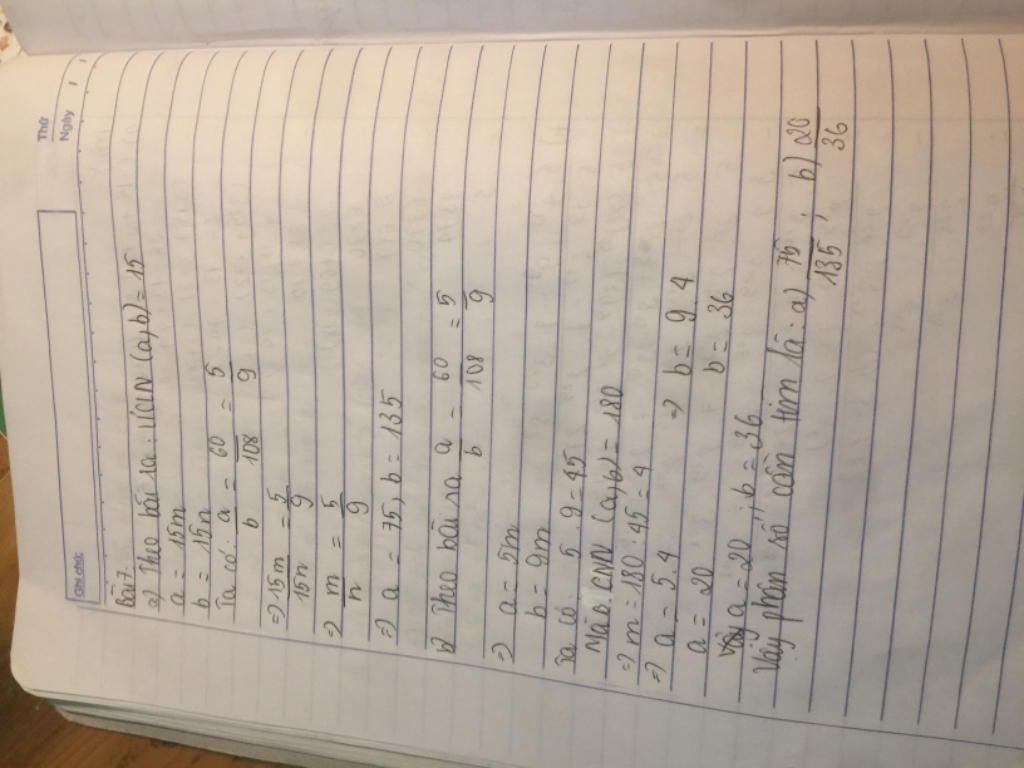 Thứ
Ngày
Ghi chép
Bài 7:
a) Theo bài ra: ƯCLN (a,b) = 15
a = 15m
b = 15n
Ta có: a/b = 60/108 = 5/9
=> 15m/15n = 5/9
=> m/n = 5/9
=> a = 75, b = 135
b) Theo bài ra a/b = 60/108 = 5/9
=> a = 5m
b = 9m
Ta có: 5 . 9 = 45
Mà BCNN (a,b) = 180
=> m = 180 : 45 = 4
=> a = 5.4 => b = 9.4
a = 20 b = 36
Vậy a = 20 ; b = 36
Vậy phân số cần tìm là: a) 75/135 ; b) 20/36